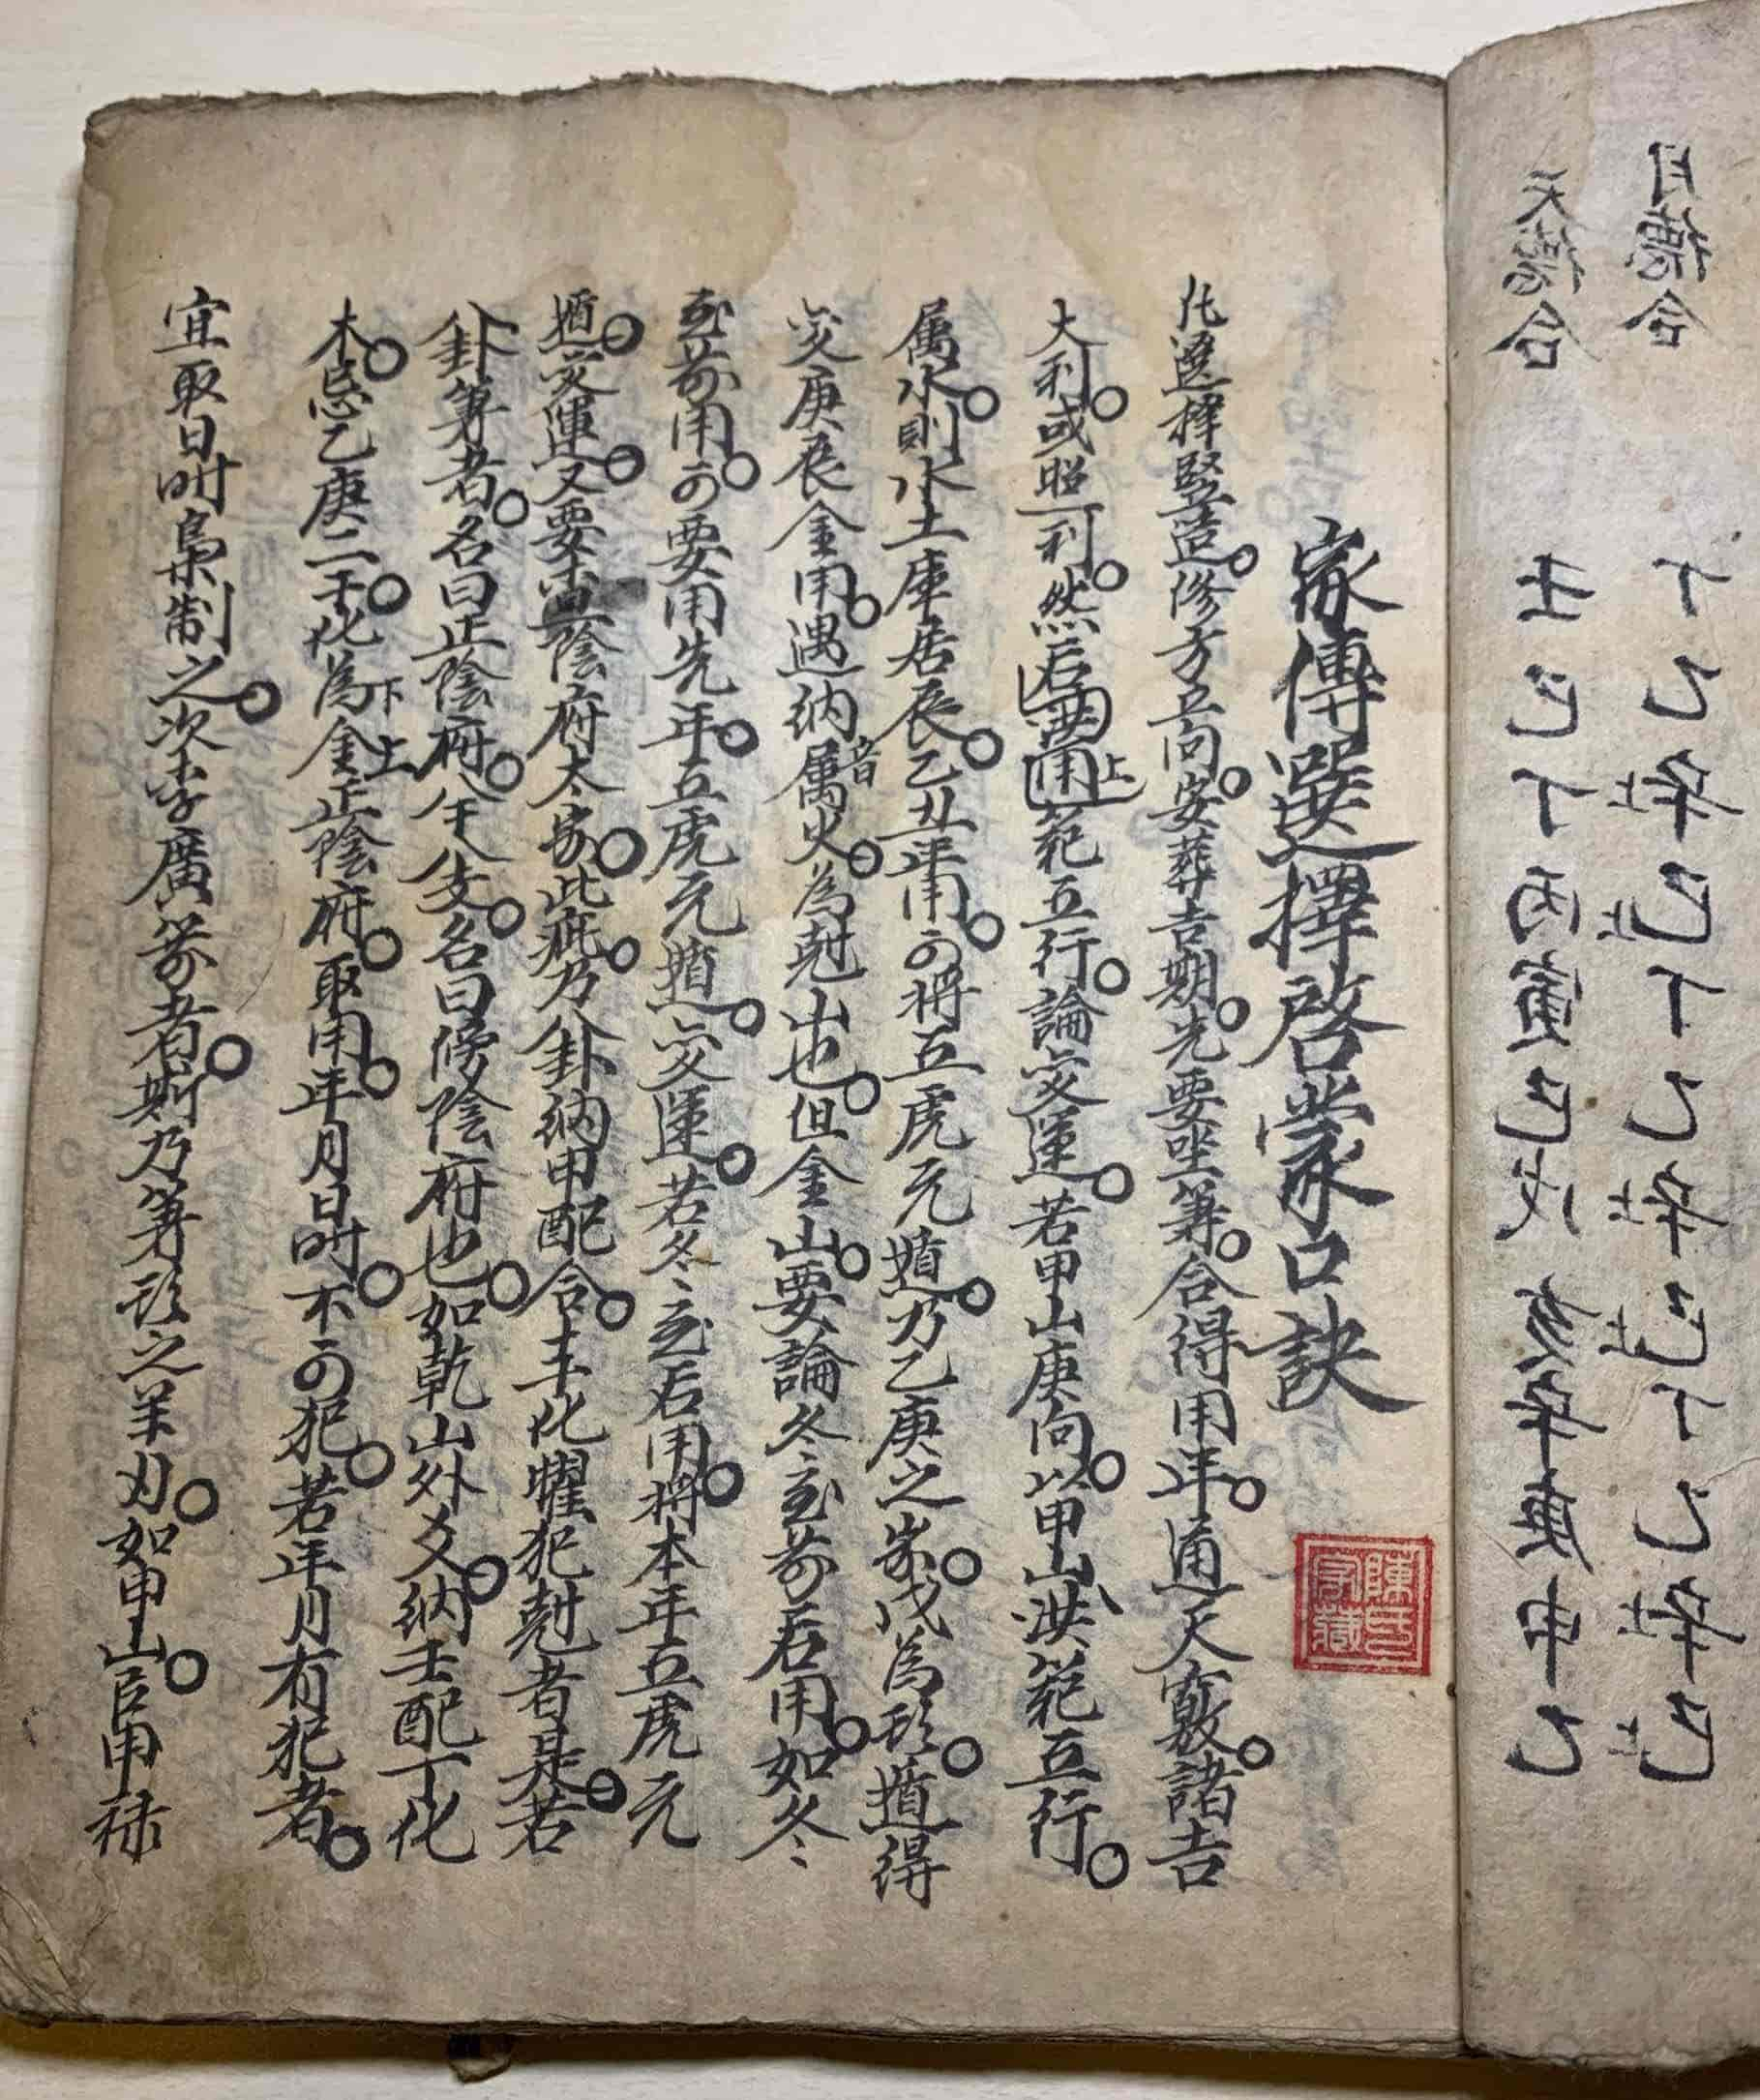 月德合 丁乙辛巳丁乙辛巳丁乙辛巳
天德合 壬巳丁丙寅己戊亥辛庚申乙
家傳選擇啓蒙口訣
陳氏字藏
凡選擇竪造。修方立向。安葬吉期。先要坐筭。合得用年。通天竅。諸吉
大利。或照一利。然后用洪上範五行。論变運。若甲山庚向。以甲山洪範五行。
属水。則水土庫居辰。乙丑年用。可將五虎元遁。乃乙庚之歲。戊為頭。遁得
变庚辰金用。遇納音属火。為尅山也。但金山。要論冬至前后用。如冬
至前用。可要用先年。五虎元遁。变運。若冬至后用。將本年五虎元
遁。变運。又要查陰府太歲。此疵。乃八卦納甲配合。干化曜犯尅者是。若
八卦筭者。名曰正陰府。八干八支。名曰傍陰府也。如乾山外爻。納壬配丁化
木。忌乙庚二干。化為下金上正陰府。取用。年月日時。不可犯。若年月有犯者。
宜取日時梟制之。次李廣箭者。斯乃筭頭之羊刃。如甲山。臣甲祿